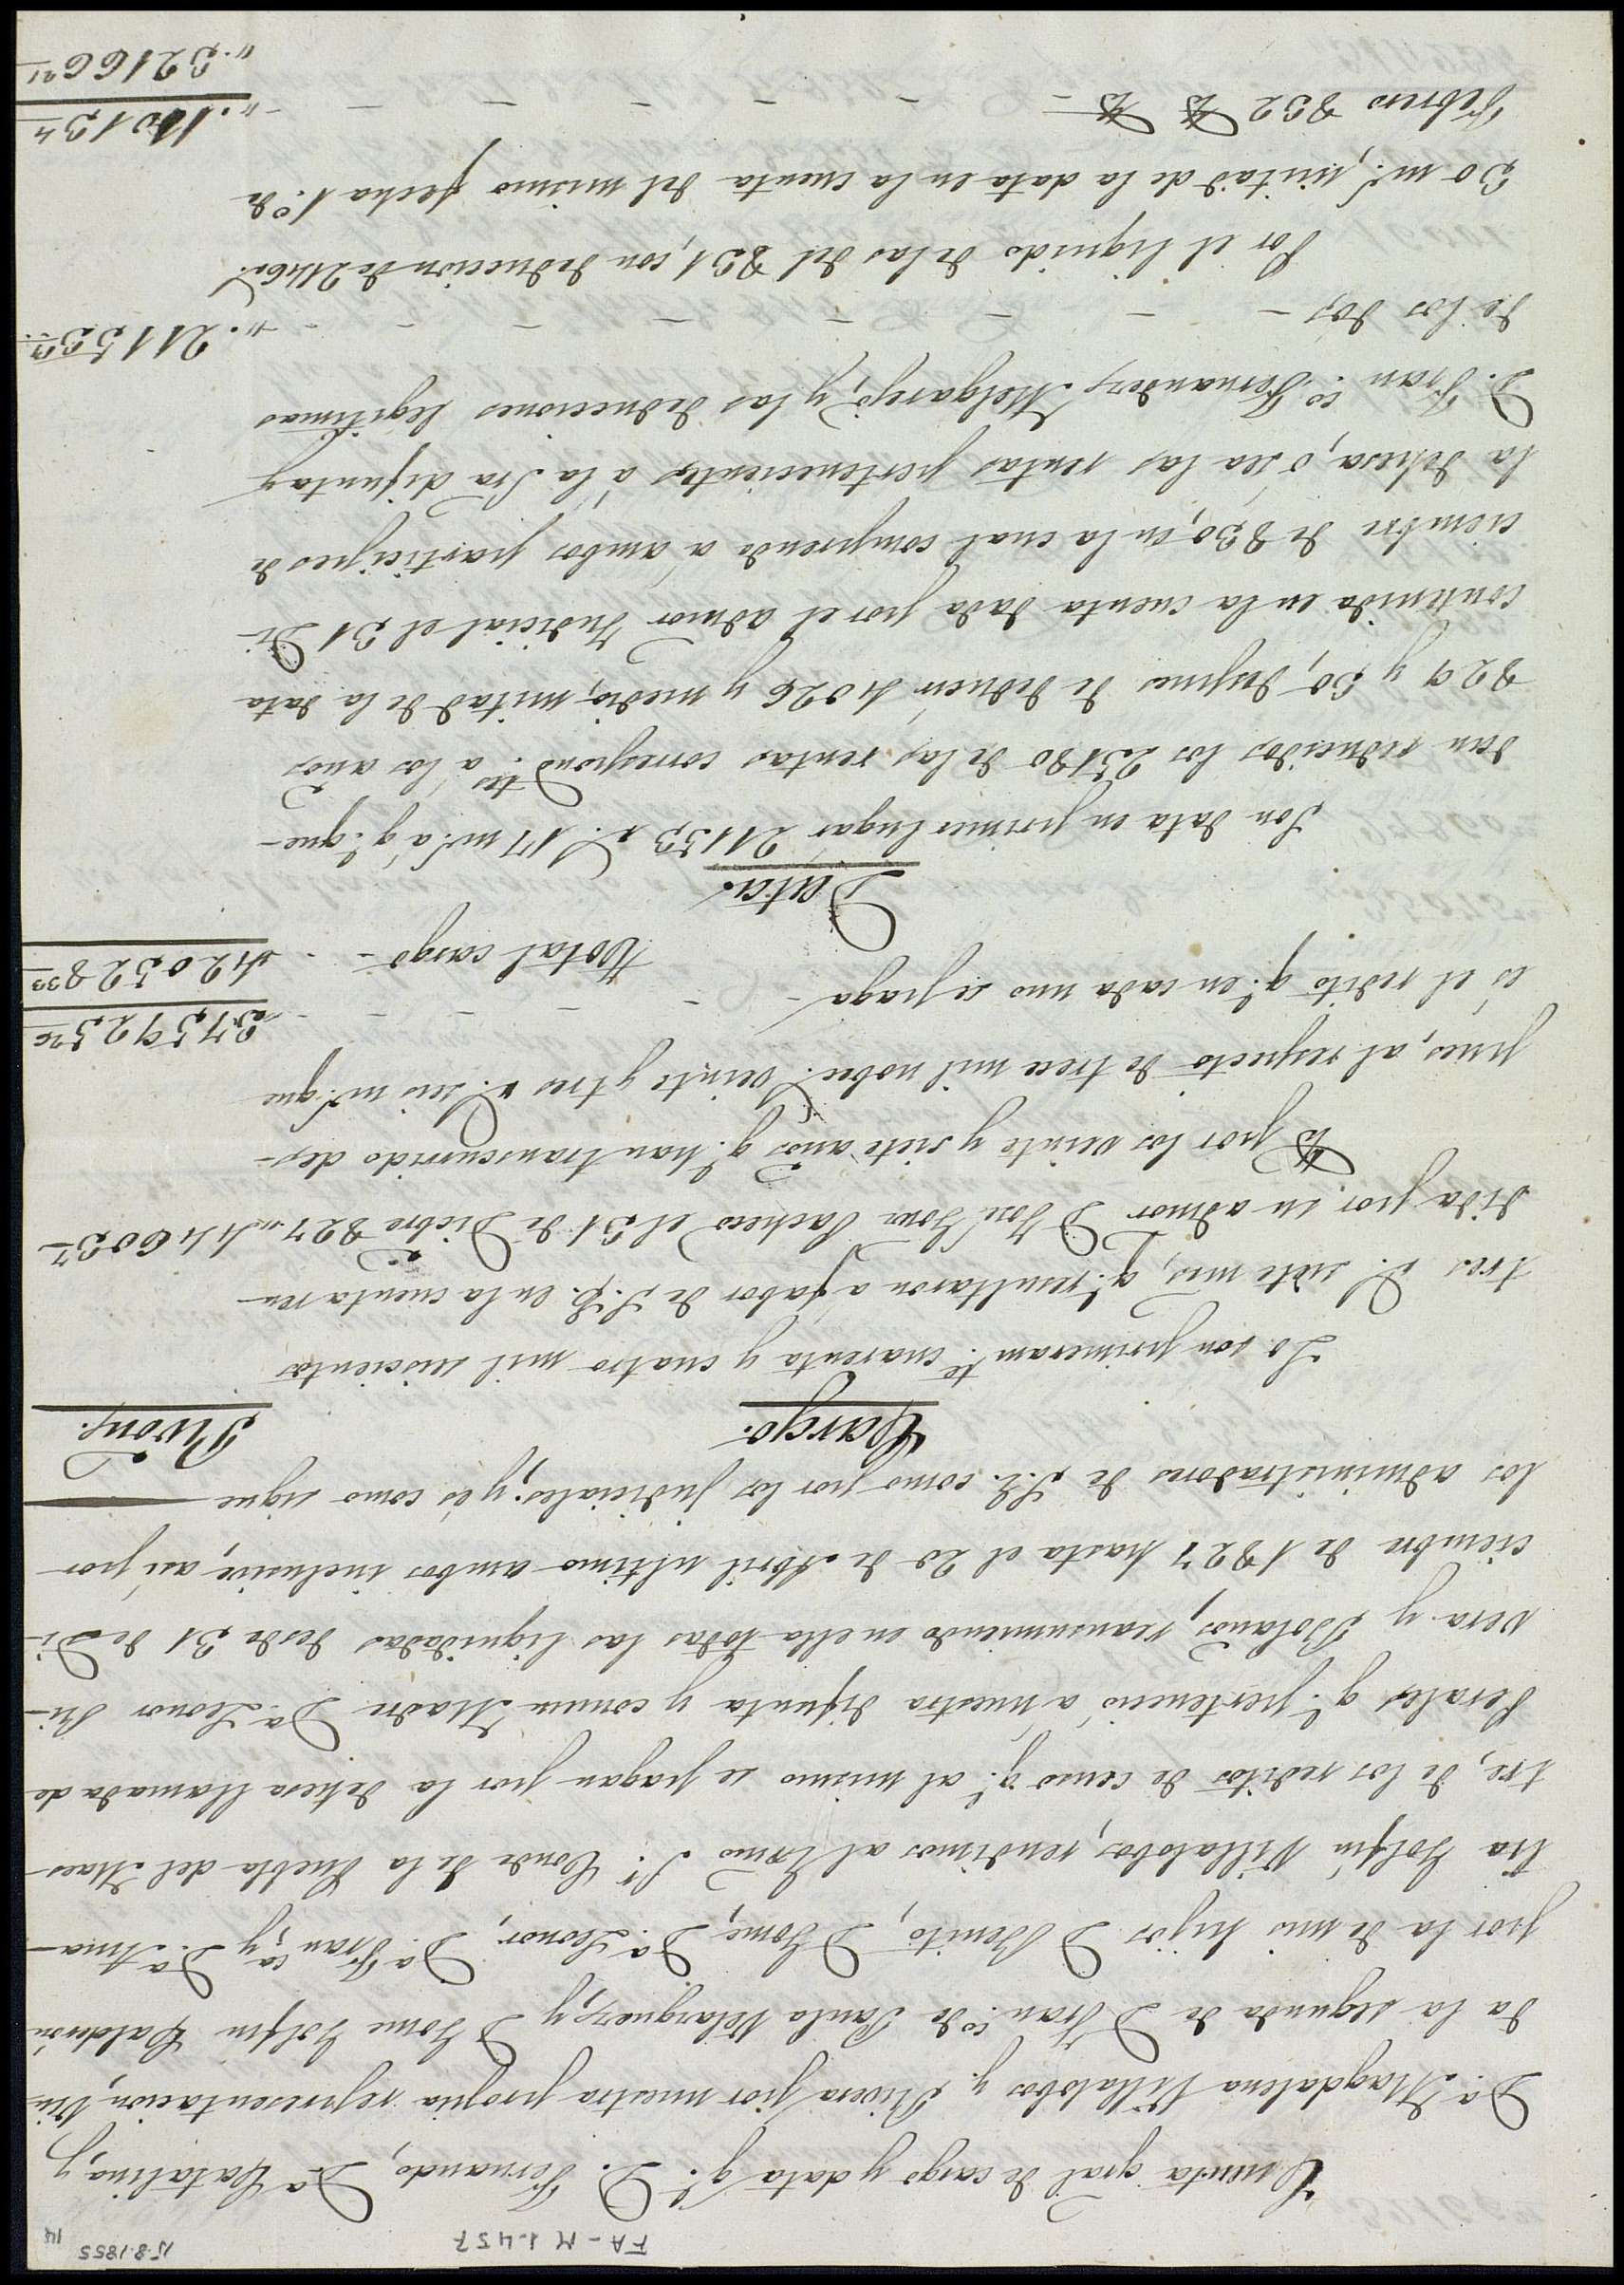 FA-M 1-457
15.8.1855
14
Cuenta gral de cargo y data q.e D. Fernando, D.a Catalina, y
D.a Magdalena Villalobos y Rivera por nuestra propia representacion, viu-
da la segunda de D Fran.co de Paula Velazquez, y D Gome Golfin Calderon
por la de mis hijos D Benito, D Gome, D.a Leonor, D.a Fran.ca y D.a Ama-
lia Golfin Villalobos, rendimos al Exmo S.r Conde de la Puebla del Maes-
tre, de los reditos de censo q.e al mismo se pagan por la dehesa llamada de
Perales q.e pertenecio á nuestra difunta y comun Madre D.a Leonor Ri-
vera y Bolaños, reasumiendo en ella todas las liquidadas desde 31 de Di-
ciembre de 1827 hasta el 20 de Abril ultimo ambos inclusive, así por
los administradores de S.E. como por los judiciales; y és como sigue
Cargo. R.s von.
Lo son primeram.te cuarenta y cuatro mil seiscientos
tres r.s siete mrs, q.e resultaron a fabor de S.E. en la cuenta ren-
dida por su admor D José Gom. Pacheco el 31 de Dicbre 827 " 44603 7
Yd por los veinte y siete años q.e han transcurrido des-
pues, al respecto de trece mil nobec.s veinte y tres r.s seis m.s que
és el redito q.e en cada uno se paga - - - - 375925 26
Total cargo - - 420528 33
Data.
Son data en primer lugar 21153 r.s 17 m.s á q.e que-
dan reducidos los 25180 de las rentas correspond.tes a los años
829 y 30, despues de deducir 4026 y medio, mitad de la data
contenida en la cuenta dada por el admor Judicial el 31 Di-
ciembre de 830, en la cual comprende á ambos participes de
la dehesa, ó sea las rentas pertenecientes á la Sra difunta y
D. Fran.co Fernandez Melgarejo, y las deducciones legitimas
de los dos - - - - - - - - ". 21153 17
Por el liquido de las del 831, con deduccion de 2146 r.s
30 m.s, mitad de la data en la cuenta del mismo fecha 1.o de
Febrero 832 - - - - - - - ". 11013 4
". 32166 21